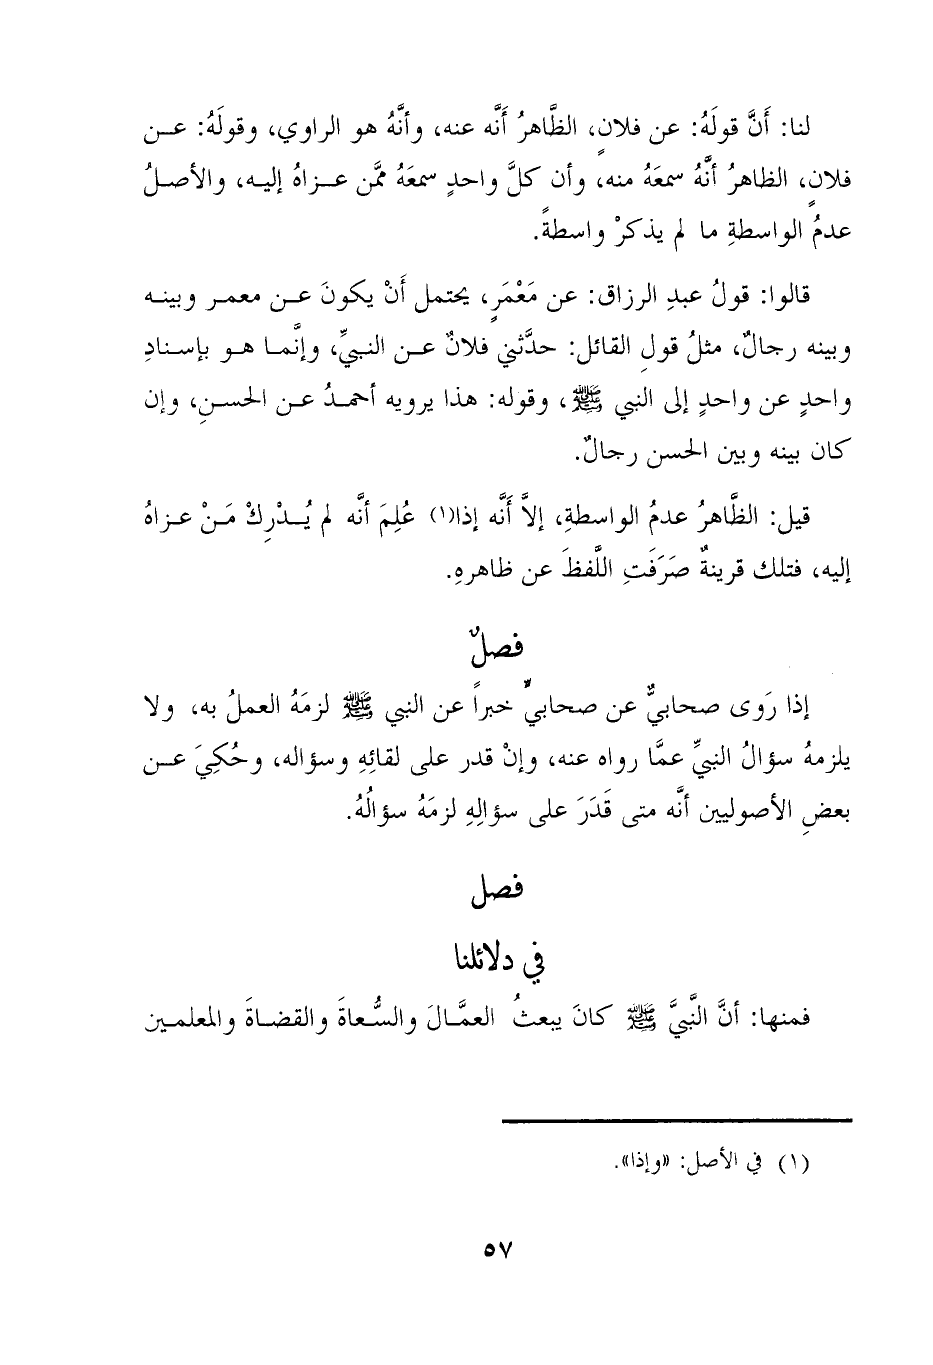 لنا: أَنَّ قولَهُ: عن فلانٍ، الظَّاهرُ أَنَّه عنه، وأنَّهُ هو الراوي، وقولَهُ: عـن
فلانٍ، الظاهرُ أنَّهُ سمعَهُ منه، وأن كلَّ واحدٍ سمعَهُ ممَّن عـزاهُ إليـه، والأصـلُ
عدمُ الواسطةِ ما لم يذكرْ واسطةً.
قالوا: قولُ عبدِ الرزاق: عن مَعْمَرٍ، يحتمل أَنْ يكونَ عـن معمـر وبينـه
وبينه رجالٌ، مثلُ قولِ القائل: حدَّثني فلانٌ عـن النبـيِّ، وإنَّمـا هـو بإسـنادِ
واحدٍ عن واحدٍ إلى النبي ﷺ، وقوله: هذا يرويه أحمـدُ عـن الحسـنِ، وإن
كان بينه وبين الحسن رجالٌ.
قيل: الظَّاهرُ عدمُ الواسطةِ، إلاَّ أَنَّه إذا(١) عُلِمَ أنَّه لم يُـدْرِكْ مَـنْ عـزاهُ
إليه، فتلك قرينةٌ صَرَفَتِ اللَّفظَ عن ظاهرهِ.
فصلٌ
إذا رَوى صحابيٌّ عن صحابيٍّ خبراً عن النبي ﷺ لزمَهُ العملُ به، ولا
يلزمهُ سؤالُ النبيِّ عمَّا رواه عنه، وإنْ قدر على لقائِهِ وسؤاله، وحُكِيَ عـن
بعضِ الأصوليين أنَّه متى قَدَرَ على سؤالِهِ لزمَهُ سؤالُهُ.
فصل
في دلائلنا
فمنها: أنَّ النَّبيَّ ﷺ كانَ يبعثُ العمَّـالَ والسُّعاةَ والقضـاةَ والمعلمـين
(١) في الأصل: «وإذا».
٥٧